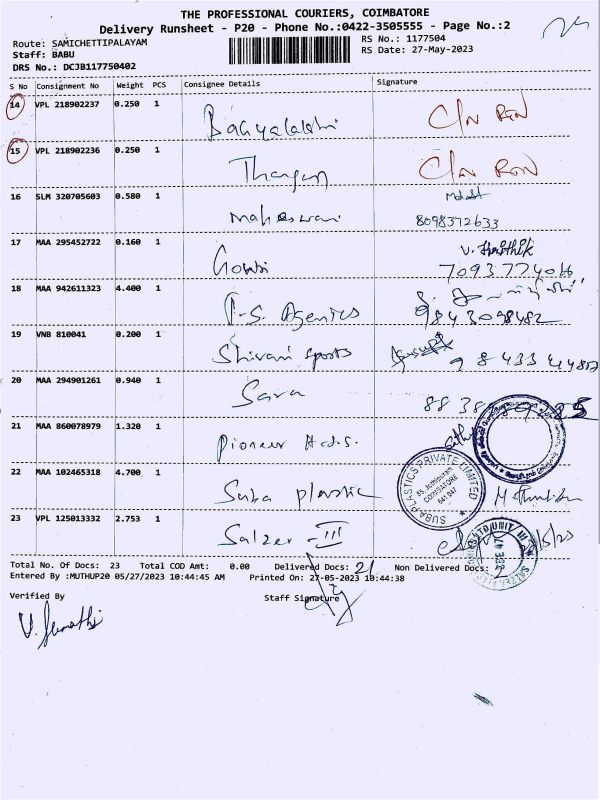 THE PROFESSIONAL COURIERS, COIMBATORE
Delivery Runsheet - P20 - Phone No.:0422-3505555 - Page No.:2
Route: SAMICHETTIPALAYAM
RS No.: 1177504
Staff: BABU
RS Date: 27-May-2023
DRS No.: DCJB117750402
S No Consignment No Weight PCS Consignee Details Signature
14 VPL 218902237 0.250 1 Bagyalakshmi
15 VPL 218902236 0.250 1 Thangam
16 SLM 320705603 0.580 1 Maheswari
8098372633
17 MAA 295452722 0.160 1 Gowri V. Harthik
18 MAA 942611323 4.400 1 T-S. Agencies
9843098482
19 VNB 810041 0.200 1 Shivani Sports
20 MAA 294901261 0.940 1 Sara
21 MAA 860078979 1.320 1 Pioneer
22 MAA 102465318 4.700 1 Suba plastic
SUBA PLASTICS PRIVATE LIMITED
COIMBATORE
641 047
23 VPL 125013332 2.753 1 Salzer - III
Total No. Of Docs: 23 Total COD Amt: 0.00 Delivered Docs: 21 Non Delivered Docs: 2
Entered By :MUTHUP20 05/27/2023 10:44:45 AM Printed On: 27-05-2023 10:44:38
Verified By Staff Signature
V. Sumathi